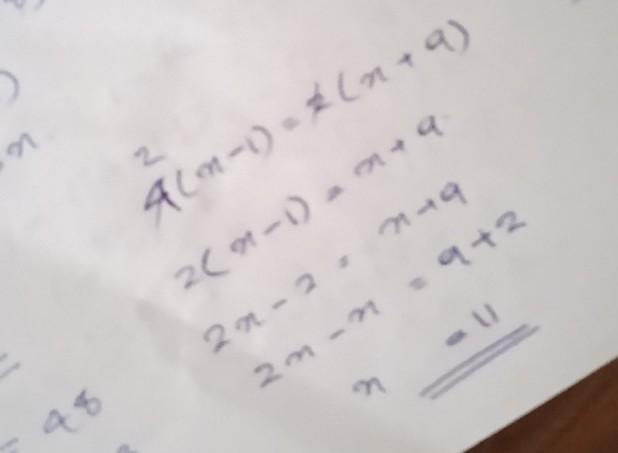 )
x
2
4(x-1) = 2(x+9)
2(x-1) = x+9
2x-2 = x+9
2x-x = 9+2
x = 11
= 48